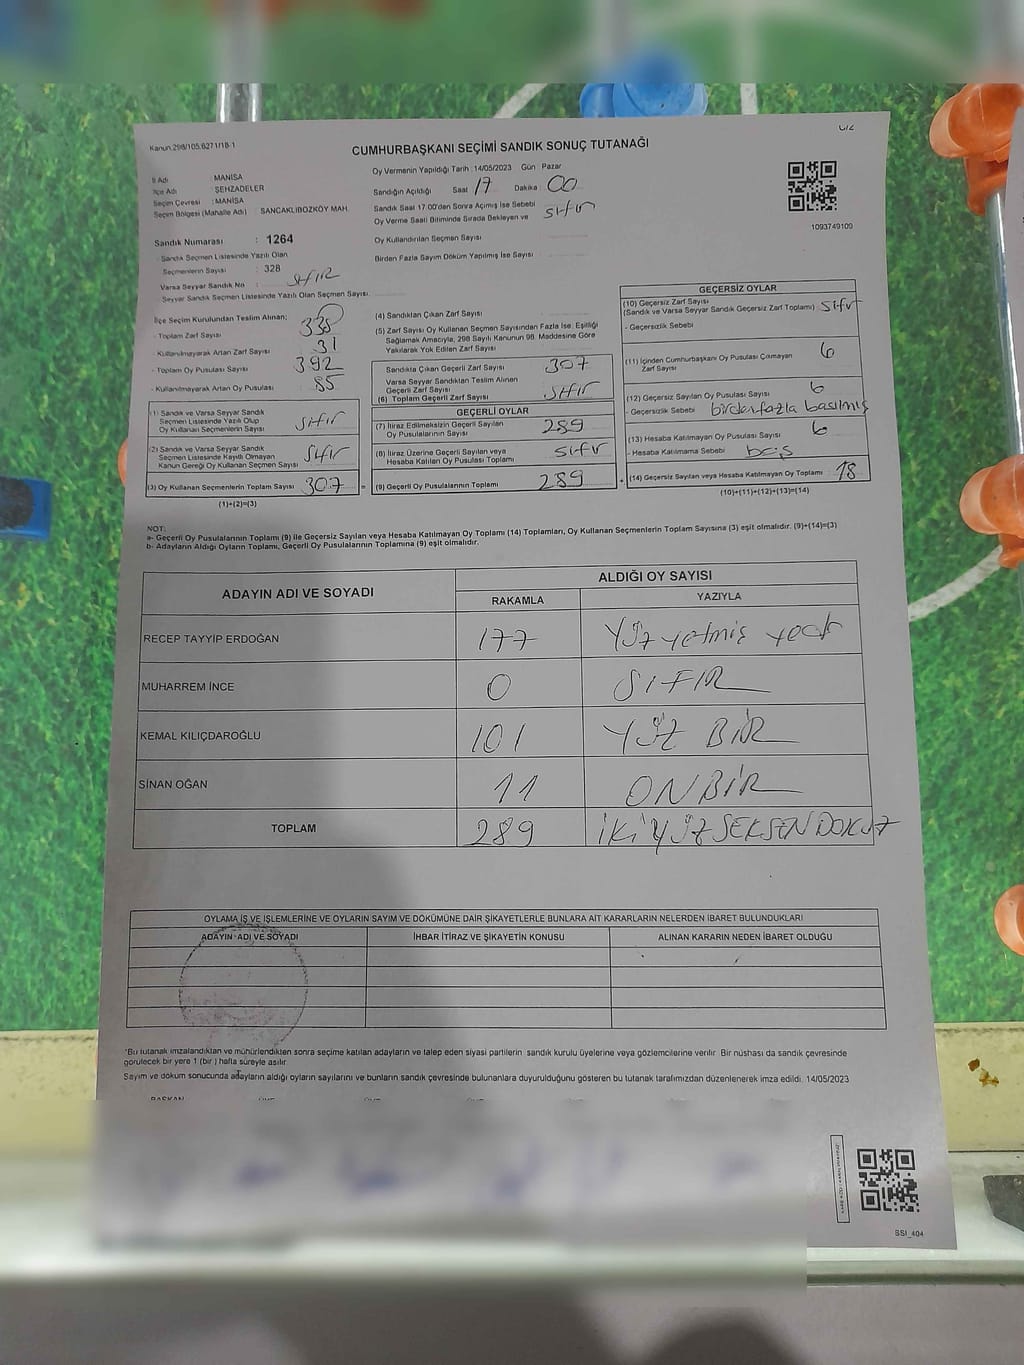 Kanun.298/105.6271/18-1
CUMHURBAŞKANI SEÇİMİ SANDIK SONUÇ TUTANAĞI
İl Adı : MANİSA
İlçe Adı : ŞEHZADELER
Seçim Çevresi : MANİSA
Seçim Bölgesi (Mahalle Adı) SANCAKLIBOZKÖY MAH.
Sandık Numarası : 1264
Sandık Seçmen Listesinde Yazılı Olan
Seçmenlerin Sayısı : 328
Varsa Seyyar Sandık No : SIFIR
Seyyar Sandık Seçmen Listesinde Yazılı Olan Seçmen Sayısı
Oy Vermenin Yapıldığı Tarih : 14/05/2023 Gün Pazar
Sandığın Açıldığı Saat 17 Dakika : 00
Sandık Saat 17:00'den Sonra Açımış İse Sebebi
Oy Verme Saati Bitiminde Sırada Bekleyen ve sıfır
Oy Kullandırılan Seçmen Sayısı
Birden Fazla Sayım Döküm Yapılmış İse Sayısı
1093749109
İlçe Seçim Kurulundan Teslim Alınan;
- Toplam Zarf Sayısı 338
- Kullanılmayarak Artan Zarf Sayısı 31
- Toplam Oy Pusulası Sayısı 392
- Kullanılmayarak Artan Oy Pusulası 85
(1) Sandık ve Varsa Seyyar Sandık
Seçmen Listesinde Yazılı Olup
Oy Kullanan Seçmenlerin Sayısı sıfır
(2) Sandık ve Varsa Seyyar Sandık
Seçmen Listesinde Kayıtlı Olmayan
Kanun Gereği Oy Kullanan Seçmen Sayısı sıfır
(3) Oy Kullanan Seçmenlerin Toplam Sayısı 307
(1)+(2)=(3)
(4) Sandıktan Çıkan Zarf Sayısı
(5) Zarf Sayısı Oy Kullanan Seçmen Sayısından Fazla İse, Eşitliği
Sağlamak Amacıyla, 298 Sayılı Kanunun 98. Maddesine Göre
Yakılarak Yok Edilen Zarf Sayısı
Sandıkta Çıkan Geçerli Zarf Sayısı 307
Varsa Seyyar Sandıktan Teslim Alınan
Geçerli Zarf Sayısı sıfır
(6) Toplam Geçerli Zarf Sayısı
GEÇERLİ OYLAR
(7) İtiraz Edilmeksizin Geçerli Sayılan
Oy Pusulalarının Sayısı 289
(8) İtiraz Üzerine Geçerli Sayılan veya
Hesaba Katılan Oy Pusulası Toplamı sıfır
= (9) Geçerli Oy Pusulalarının Toplamı 289
GEÇERSİZ OYLAR
(10) Geçersiz Zarf Sayısı
(Sandık ve Varsa Seyyar Sandık Geçersiz Zarf Toplamı) sıfır
- Geçersizlik Sebebi
(11) İçinden Cumhurbaşkanı Oy Pusulası Çıkmayan
Zarf Sayısı 6
(12) Geçersiz Sayılan Oy Pusulası Sayısı 6
- Geçersizlik Sebebi birden fazla basılmış
(13) Hesaba Katılmayan Oy Pusulası Sayısı 6
- Hesaba Katılmama Sebebi boş
+ (14) Geçersiz Sayılan veya Hesaba Katılmayan Oy Toplamı 18
(10)+(11)+(12)+(13)=(14)
NOT:
a- Geçerli Oy Pusulalarının Toplamı (9) ile Geçersiz Sayılan veya Hesaba Katılmayan Oy Toplamı (14) Toplamları, Oy Kullanan Seçmenlerin Toplam Sayısına (3) eşit olmalıdır. (9)+(14)=(3)
b- Adayların Aldığı Oyların Toplamı, Geçerli Oy Pusulalarının Toplamına (9) eşit olmalıdır.
ADAYIN ADI VE SOYADI ALDIĞI OY SAYISI
RAKAMLA YAZIYLA
RECEP TAYYİP ERDOĞAN 177 Yüz yetmiş yedi
MUHARREM İNCE 0 SIFIR
KEMAL KILIÇDAROĞLU 101 YÜZ BİR
SİNAN OĞAN 11 ONBİR
TOPLAM 289 İKİ YÜZ SEKSEN DOKUZ
OYLAMA İŞ VE İŞLEMLERİNE VE OYLARIN SAYIM VE DÖKÜMÜNE DAİR ŞİKAYETLERLE BUNLARA AİT KARARLARIN NELERDEN İBARET BULUNDUKLARI
ADAYIN ADI VE SOYADI İHBAR İTİRAZ VE ŞİKAYETİN KONUSU ALINAN KARARIN NEDEN İBARET OLDUĞU
*Bu tutanak imzalandıktan ve mühürlendikten sonra seçime katılan adayların ve talep eden siyasi partilerin sandık kurulu üyelerine veya gözlemcilerine verilir. Bir nüshası da sandık çevresinde
görülecek bir yere 1 (bir) hafta süreyle asılır.
Sayım ve döküm sonucunda adayların aldığı oyların sayılarını ve bunların sandık çevresinde bulunanlara duyurulduğunu gösteren bu tutanak tarafımızdan düzenlenerek imza edildi. 14/05/2023
BAŞKAN ÜYE ÜYE ÜYE
SSI_404